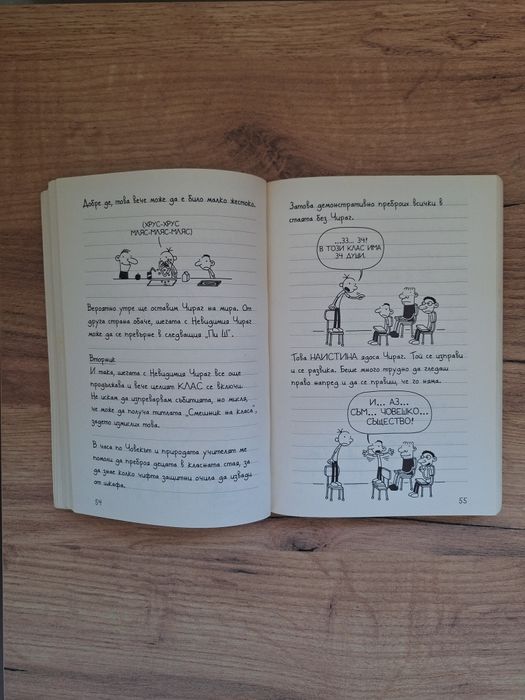 Добре де, това вече може да е било малко жестоко.
(ХРУС-ХРУС
МЛЯС-МЛЯС-МЛЯС)
Вероятно утре ще оставим Чираг на мира. От
друга страна обаче, шегата с Невидимия Чираг
може да се превърне в следващия „Пи Ш".
Вторник
И така, шегата с Невидимия Чираг все още
продължава и вече целият КЛАС се включи.
Не искам да изпреварвам събитията, но мисля,
че може да получа титлата „Смешник на класа",
задето измислих това.
В часа по Човекът и природата учителят ме
помоли да преброя децата в класната стая, за
да знае колко чифта защитни очила да извади
от шкафа.
54
Затова демонстративно преброих всички в
стаята без Чираг.
...33... 34!
В ТОЗИ КЛАС ИМА
34 ДУШИ.
Това НАИСТИНА ядоса Чираг. Той се изправи
и се развика. Беше много трудно да гледаш
право напред и да се правиш, че го няма.
И... АЗ...
СЪМ... ЧОВЕШКО...
СЪЩЕСТВО!
55